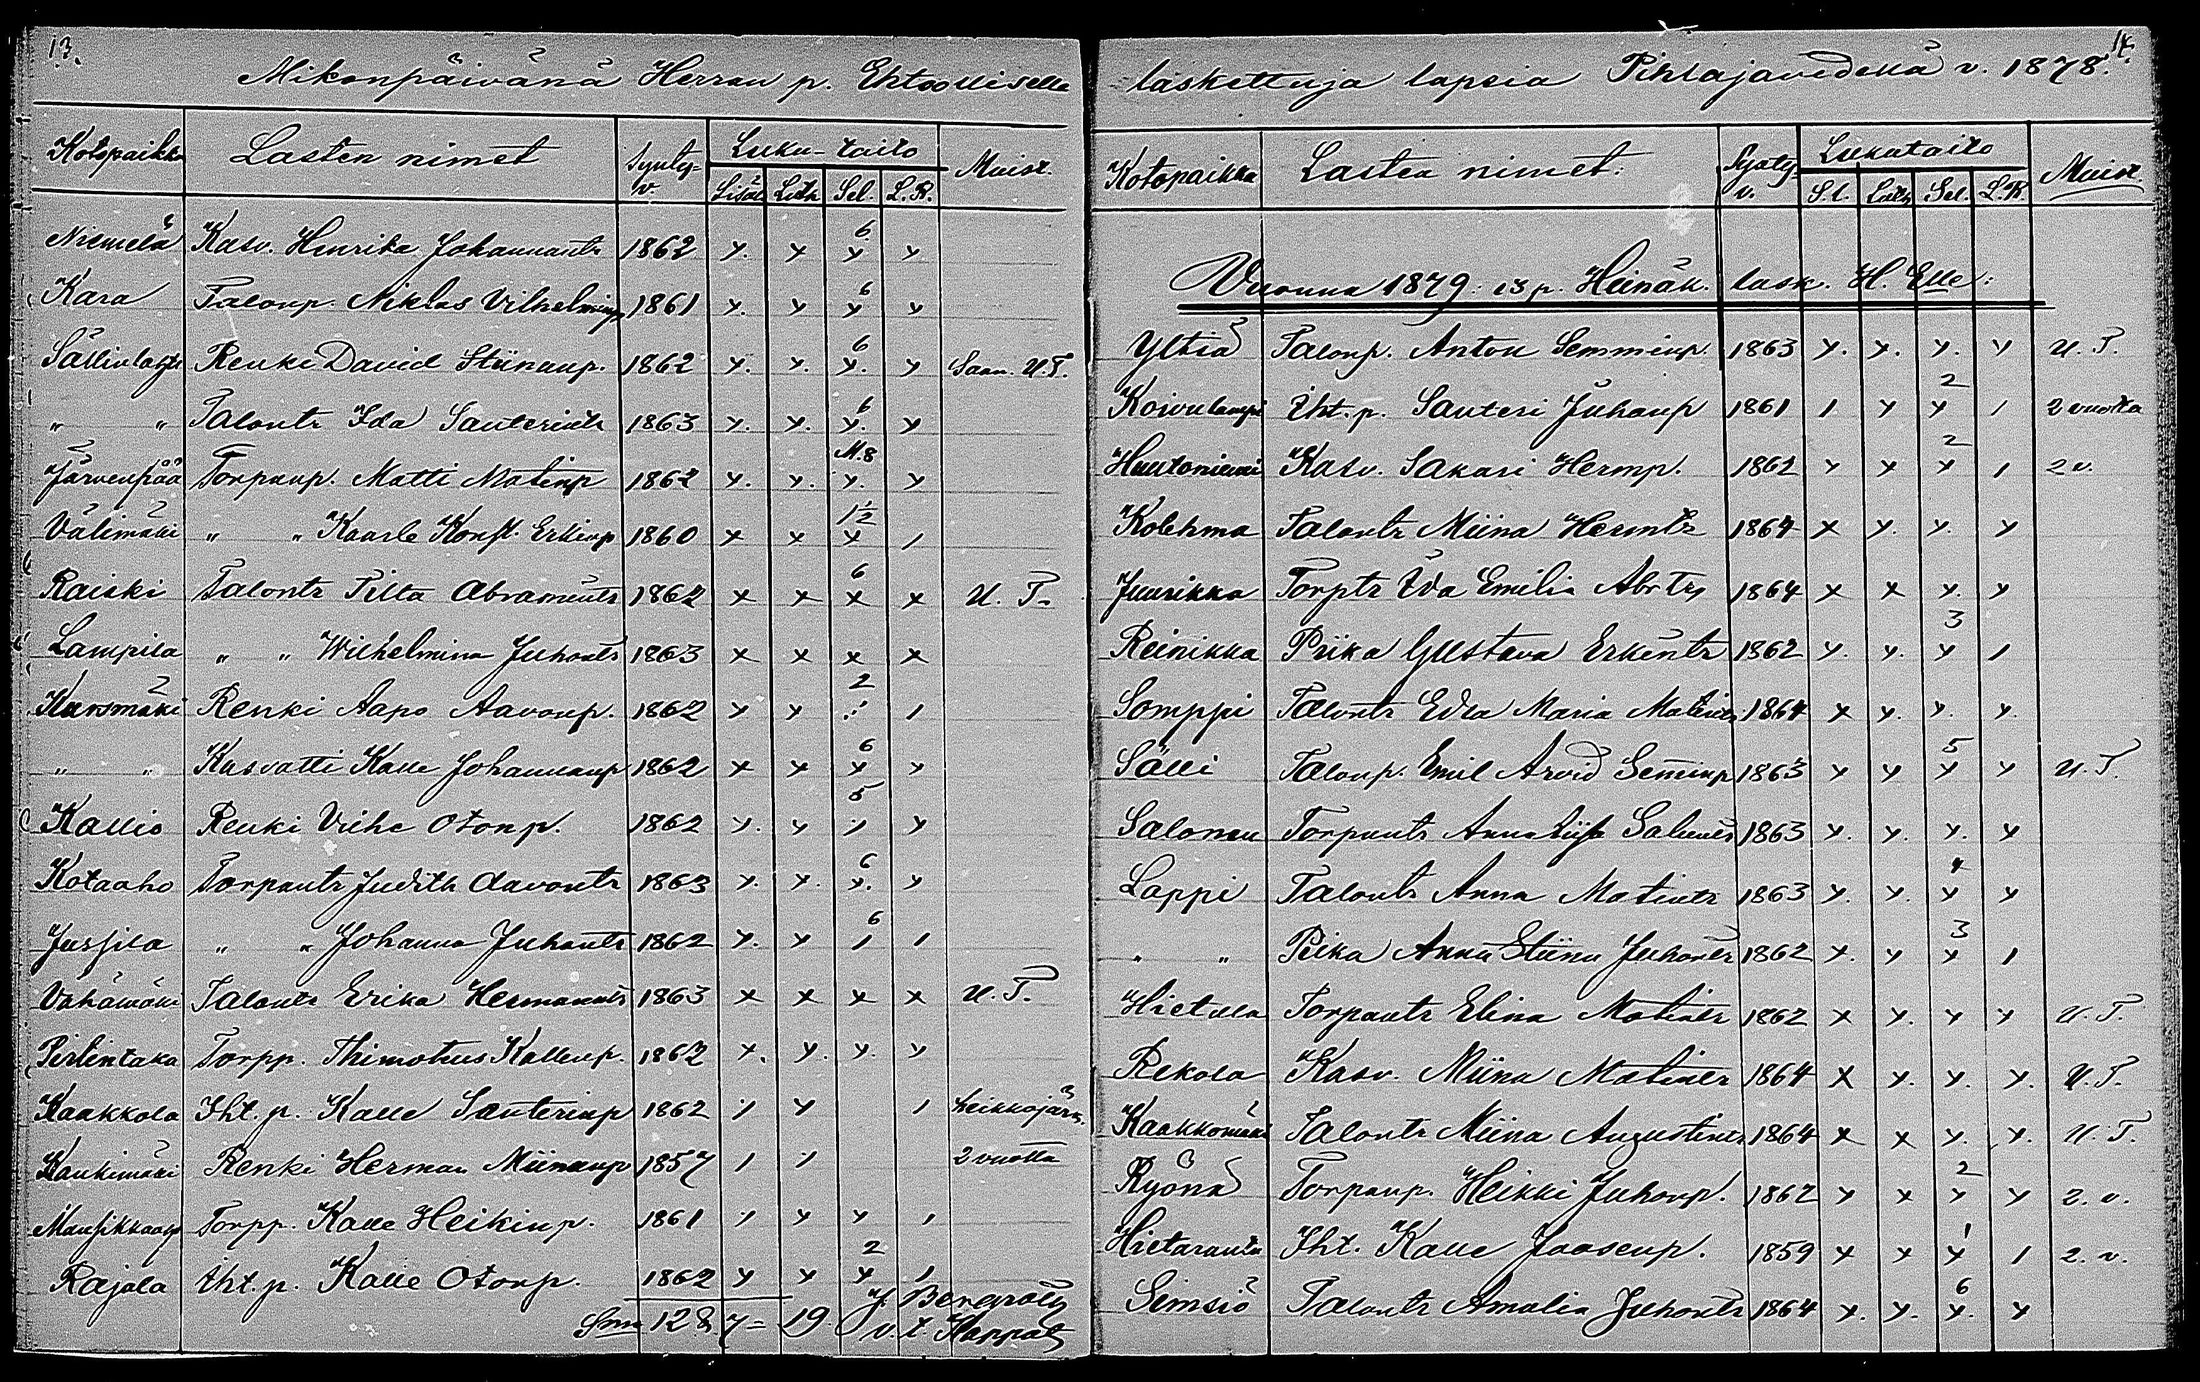 13.
Mikonpäivänä Herran p. Ehtoolliselle
Kotopaikka Lasten nimet Synty-v. Luku-taito Muist.
Sisä Lutk Sel. L.R.
Niemelä Kasv. Henrika Johannantr 1862 x. x 6 x x
Kara Talonp. Niklas Vilhelminp 1861 x. x 6 x x
Sällinlahti Renki David Stiinanp. 1862 x. x. 6 x. x Saan. U.T.
" " Talontr Ida Santerintr 1863 x. x. 6 x. x
Järvenpää Torpanp. Matti Matinp 1862 x. x. M.8 x. x
Välimäki " " Kaarle Konst. Erkinp 1860 x x 1½ x 1
Raiski Talontr Tilta Abramintr 1862 x x 6 x x U. T.
Lampila " " Wilhelmina Juhontr 1863 x x x x
Kursmäki Renki Aapo Aavonp. 1862 x x 2 1
" " Kasvatti Kalle Johannanp 1862 x x 6 x x
Kallio Renki Vihe Otonp. 1862 x. x 5 1 x
Kotaaho Torpantr Judith Aavontr 1863 x. x. 6 x. x
Jussila " " Johanna Juhontr 1862 x. x 6 1 1
Vähämäki Talontr Erika Hermanntr 1863 x x x x U. T.
Perlintaka Torpp. Thimoteus Kallenp. 1862 x. x. x. x
Kaakkola Iht. p. Kalle Santerinp 1862 1 x 1 Leikkojärv.
Kaukimäki Renki Herman Miinanp 1857 1 1 2 vuotta
Mansikkaaho Torpp. Kalle Heikinp. 1861 1 x x 1
Rajala Iht. p. Kalle Otonp. 1862 x x 2 x 1
Sma 128 7 = 19. J Bergroth
v. t. Kappal.
14.
laskettuja lapsia Pihlajavedellä v. 1878.
Kotopaikka Lasten nimet: Synty-v. Lukutaito Muist
S.l. Lutk Sel. L.R.
Vuonna 1879: 13 p. Heinäk. lask. H. Elle:
Yltiä Talonp. Anton Semminp. 1863 x. x. x. x U. T.
Koivulampi Iht. p. Santeri Juhonp 1861 1 x 2 x 1 2 vuotta
Huutoniemi Kasv. Sakari Hermp. 1862 x x 2 x 1 2 v.
Kolehma Talontr Miina Hermtr 1864 x x. x. x
Juurikka Torptr Ida Emilia Abrtr 1864 x x x. x
Reinikka Piika Gustava Erkintr 1862 x. x. 3 x 1
Somppi Talontr Edla Maria Matintr 1864 x x. x. x.
Sälli Talonp. Emil Arvid Semminp 1863 x x 5 x x U. T.
Salonen Torpantr Anna Liisa 1863 x. x. x. x
Lappi Talontr Anna Matintr 1863 x. x. 4 x x
" " Piika Anna Stiina Juhontr 1862 x. x 3 x 1
Hietala Torpantr Elina Matintr 1862 x x. x x U. T.
Rekola Kasv. Miina Matintr 1864 x x. x. x. U. T.
Kaakkomäki Talontr Miina Augustintr 1864 x x x. x. U. T.
Ryönä Torpanp. Heikki Juhonp. 1862 x x 2 x x 2. v.
Hietaranta Iht. Kalle Joosenp. 1859 x x 1 x 1 2. v.
Simsiö Talontr Amalia Juhontr 1864 x. x. 6 x. x